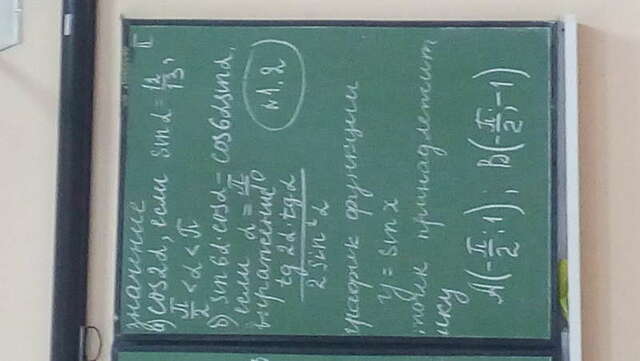 значение
а) cos2α, если sinα = 12/13,
π/2 < α < π
б) sin6α·cosα − cos6αsinα,
если α = π/10
выражение
tg2α·tgα / 2sin²α
№1,2
график функции
y = sinx
точек принадлежит
ику
A(-π/2; 1); B(-π/2; -1)